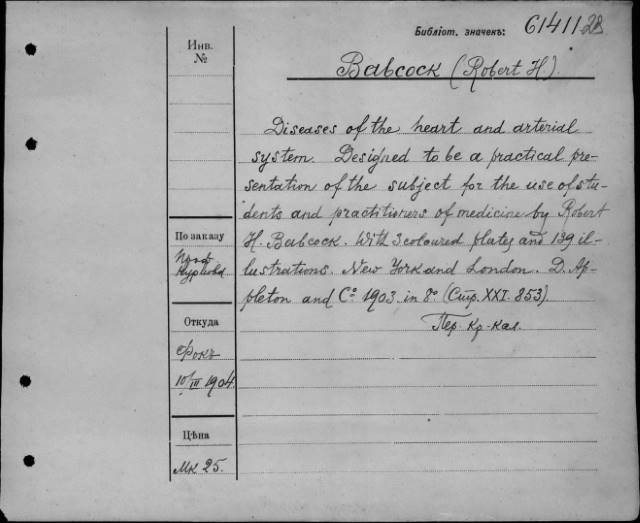 Библіот. значенъ: 61411.28
Инв.
№
Babcock (Robert H.).
Diseases of the heart and arterial
system. Designed to be a practical pre-
sentation of the subject for the use of stu-
dents and practitioners of medicine by Robert
H. Babcock. With 3 coloured plates and 139 il-
lustrations. New York and London. D. Ap-
pleton and Cº 1903 in 8º (Стр. XXI. 853).
Пер. кр-кал.
По заказу
проф
Курлова
Откуда
Фокъ
10/III 1904.
Цѣна
Мк. 25.